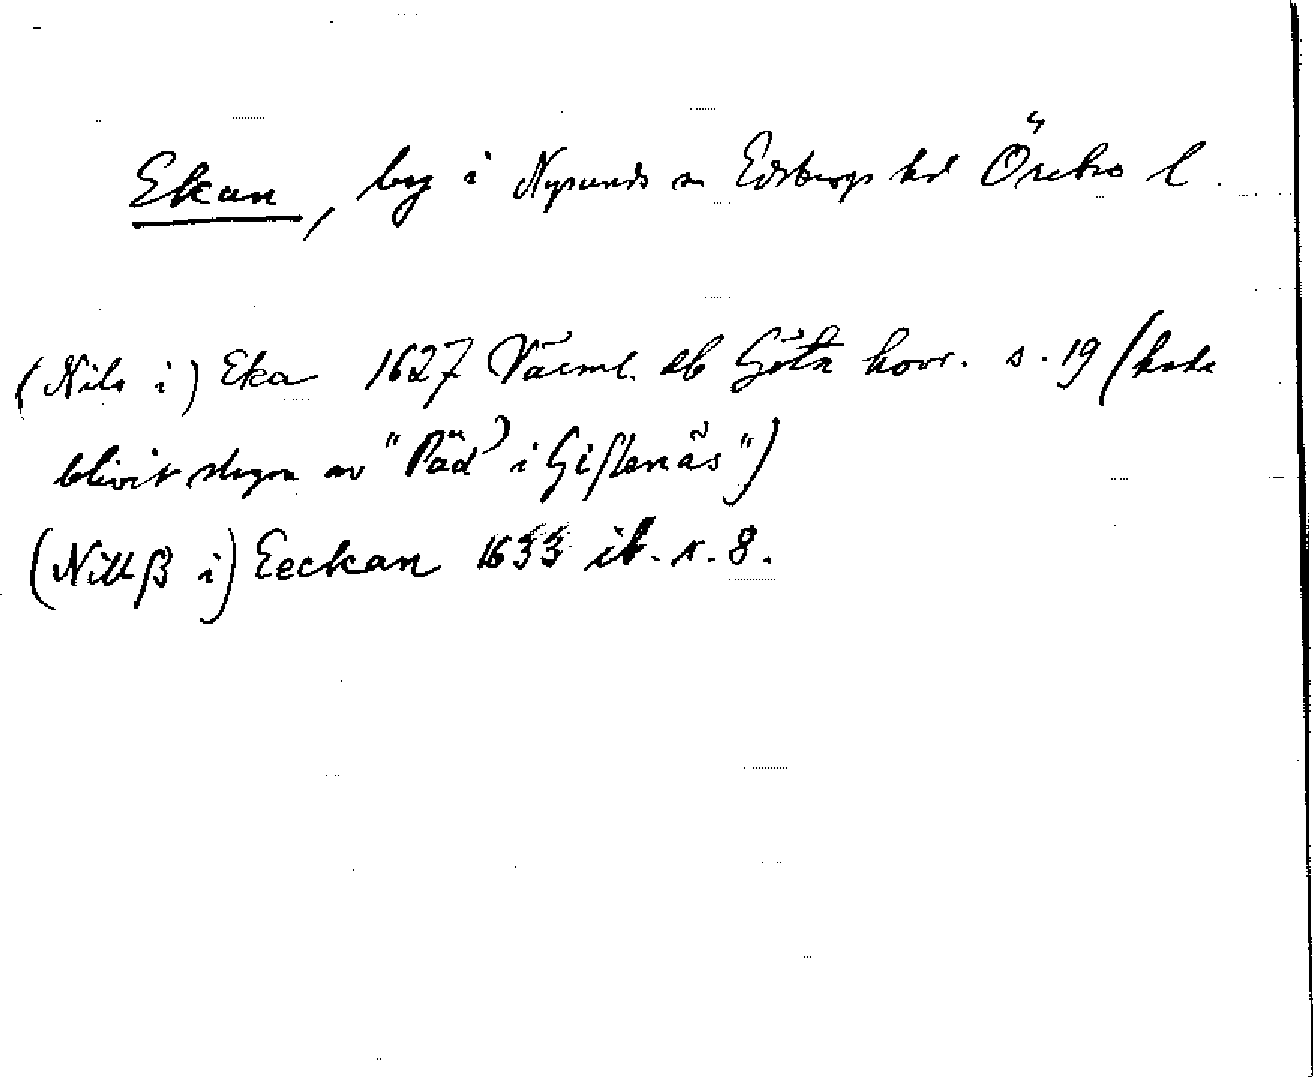 Ekan, by i Nysunds sn Edsbergs hd Örebro l.
(Nils i) Eka 1627 Värml. db Göta hovr. s. 19 (hade
blivit slagen av "Päd i Giflenäs")
(Nillß i) Eeckan 1633 ib. s. 8.